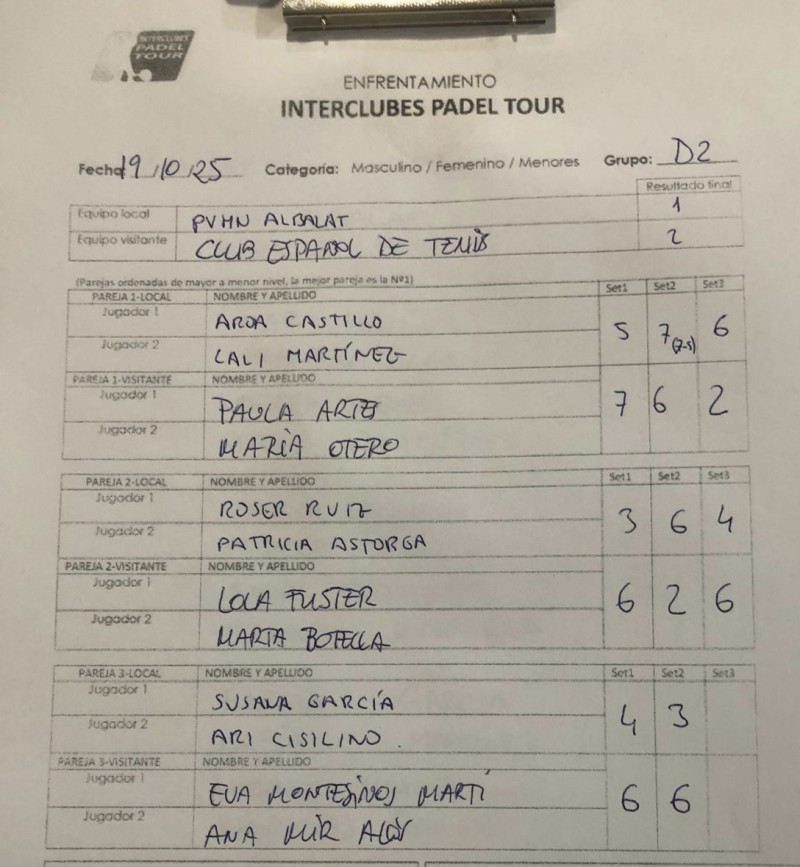 INTERCLUBES
PADEL
TOUR
ENFRENTAMIENTO
INTERCLUBES PADEL TOUR
Fecha 19/10/25 Categoría: Masculino / Femenino / Menores Grupo: D2
Resultado final
Equipo local PVHN ALBALAT 1
Equipo visitante CLUB ESPAÑOL DE TENIS 2
(Parejas ordenadas de mayor a menor nivel, la mejor pareja es la Nº1)
PAREJA 1-LOCAL NOMBRE Y APELLIDO Set1 Set2 Set3
Jugador 1 AROA CASTILLO
5 7(7-5) 6
Jugador 2 LALI MARTÍNEZ
PAREJA 1-VISITANTE NOMBRE Y APELLIDO
Jugador 1 PAULA ARTES
7 6 2
Jugador 2 MARÍA OTERO
PAREJA 2-LOCAL NOMBRE Y APELLIDO Set1 Set2 Set3
Jugador 1 ROSER RUIZ
3 6 4
Jugador 2 PATRICIA ASTORGA
PAREJA 2-VISITANTE NOMBRE Y APELLIDO
Jugador 1 LOLA FUSTER
6 2 6
Jugador 2 MARTA BOTELLA
PAREJA 3-LOCAL NOMBRE Y APELLIDO Set1 Set2 Set3
Jugador 1 SUSANA GARCÍA
4 3
Jugador 2 ARI CISILINO.
PAREJA 3-VISITANTE NOMBRE Y APELLIDO
Jugador 1 EVA MONTESINOS MARTÍ
6 6
Jugador 2 ANA MIR